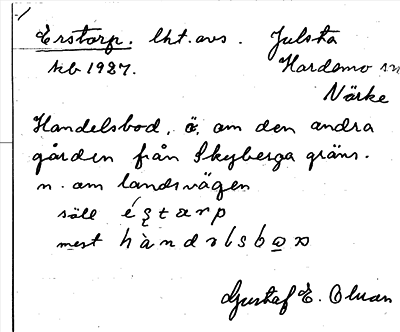 Erstorp. lht. avs. Julsta
kb 1927. Hardemo sn
Närke
Handelsbod, ö, om den andra
gården från Skyberga gräns.
n. om landsvägen
säll
mest
Gustaf E. Olson